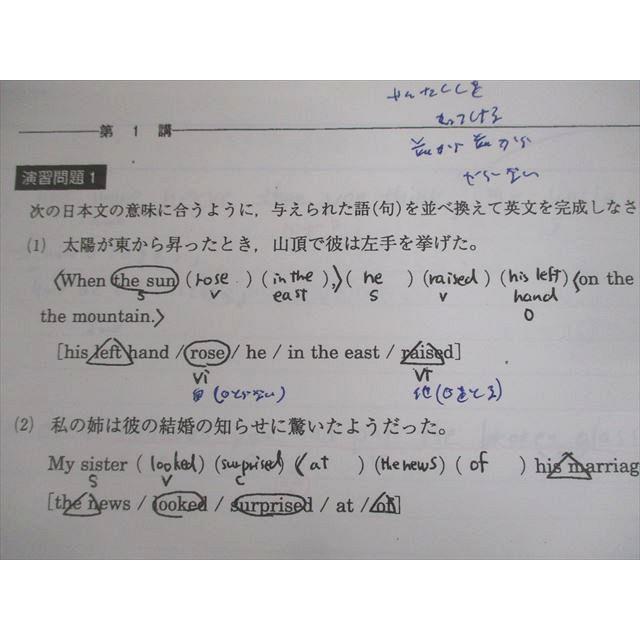 第 1 講
演習問題1
次の日本文の意味に合うように，与えられた語(句)を並べ換えて英文を完成しなさ
(1) 太陽が東から昇ったとき，山頂で彼は左手を挙げた。
〈When the sun (rose) (in the east),〉(he) (raised) (his left hand) 〈on the
S V S V O
the mountain.〉
[his left hand / rose / he / in the east / raised]
Vi Vt
自(Oとらない) 他(Oをとる)
(2) 私の姉は彼の結婚の知らせに驚いたようだった。
My sister (looked) (surprised) (at) (the news) (of) his marriag
S V C
[the news / looked / surprised / at / of]